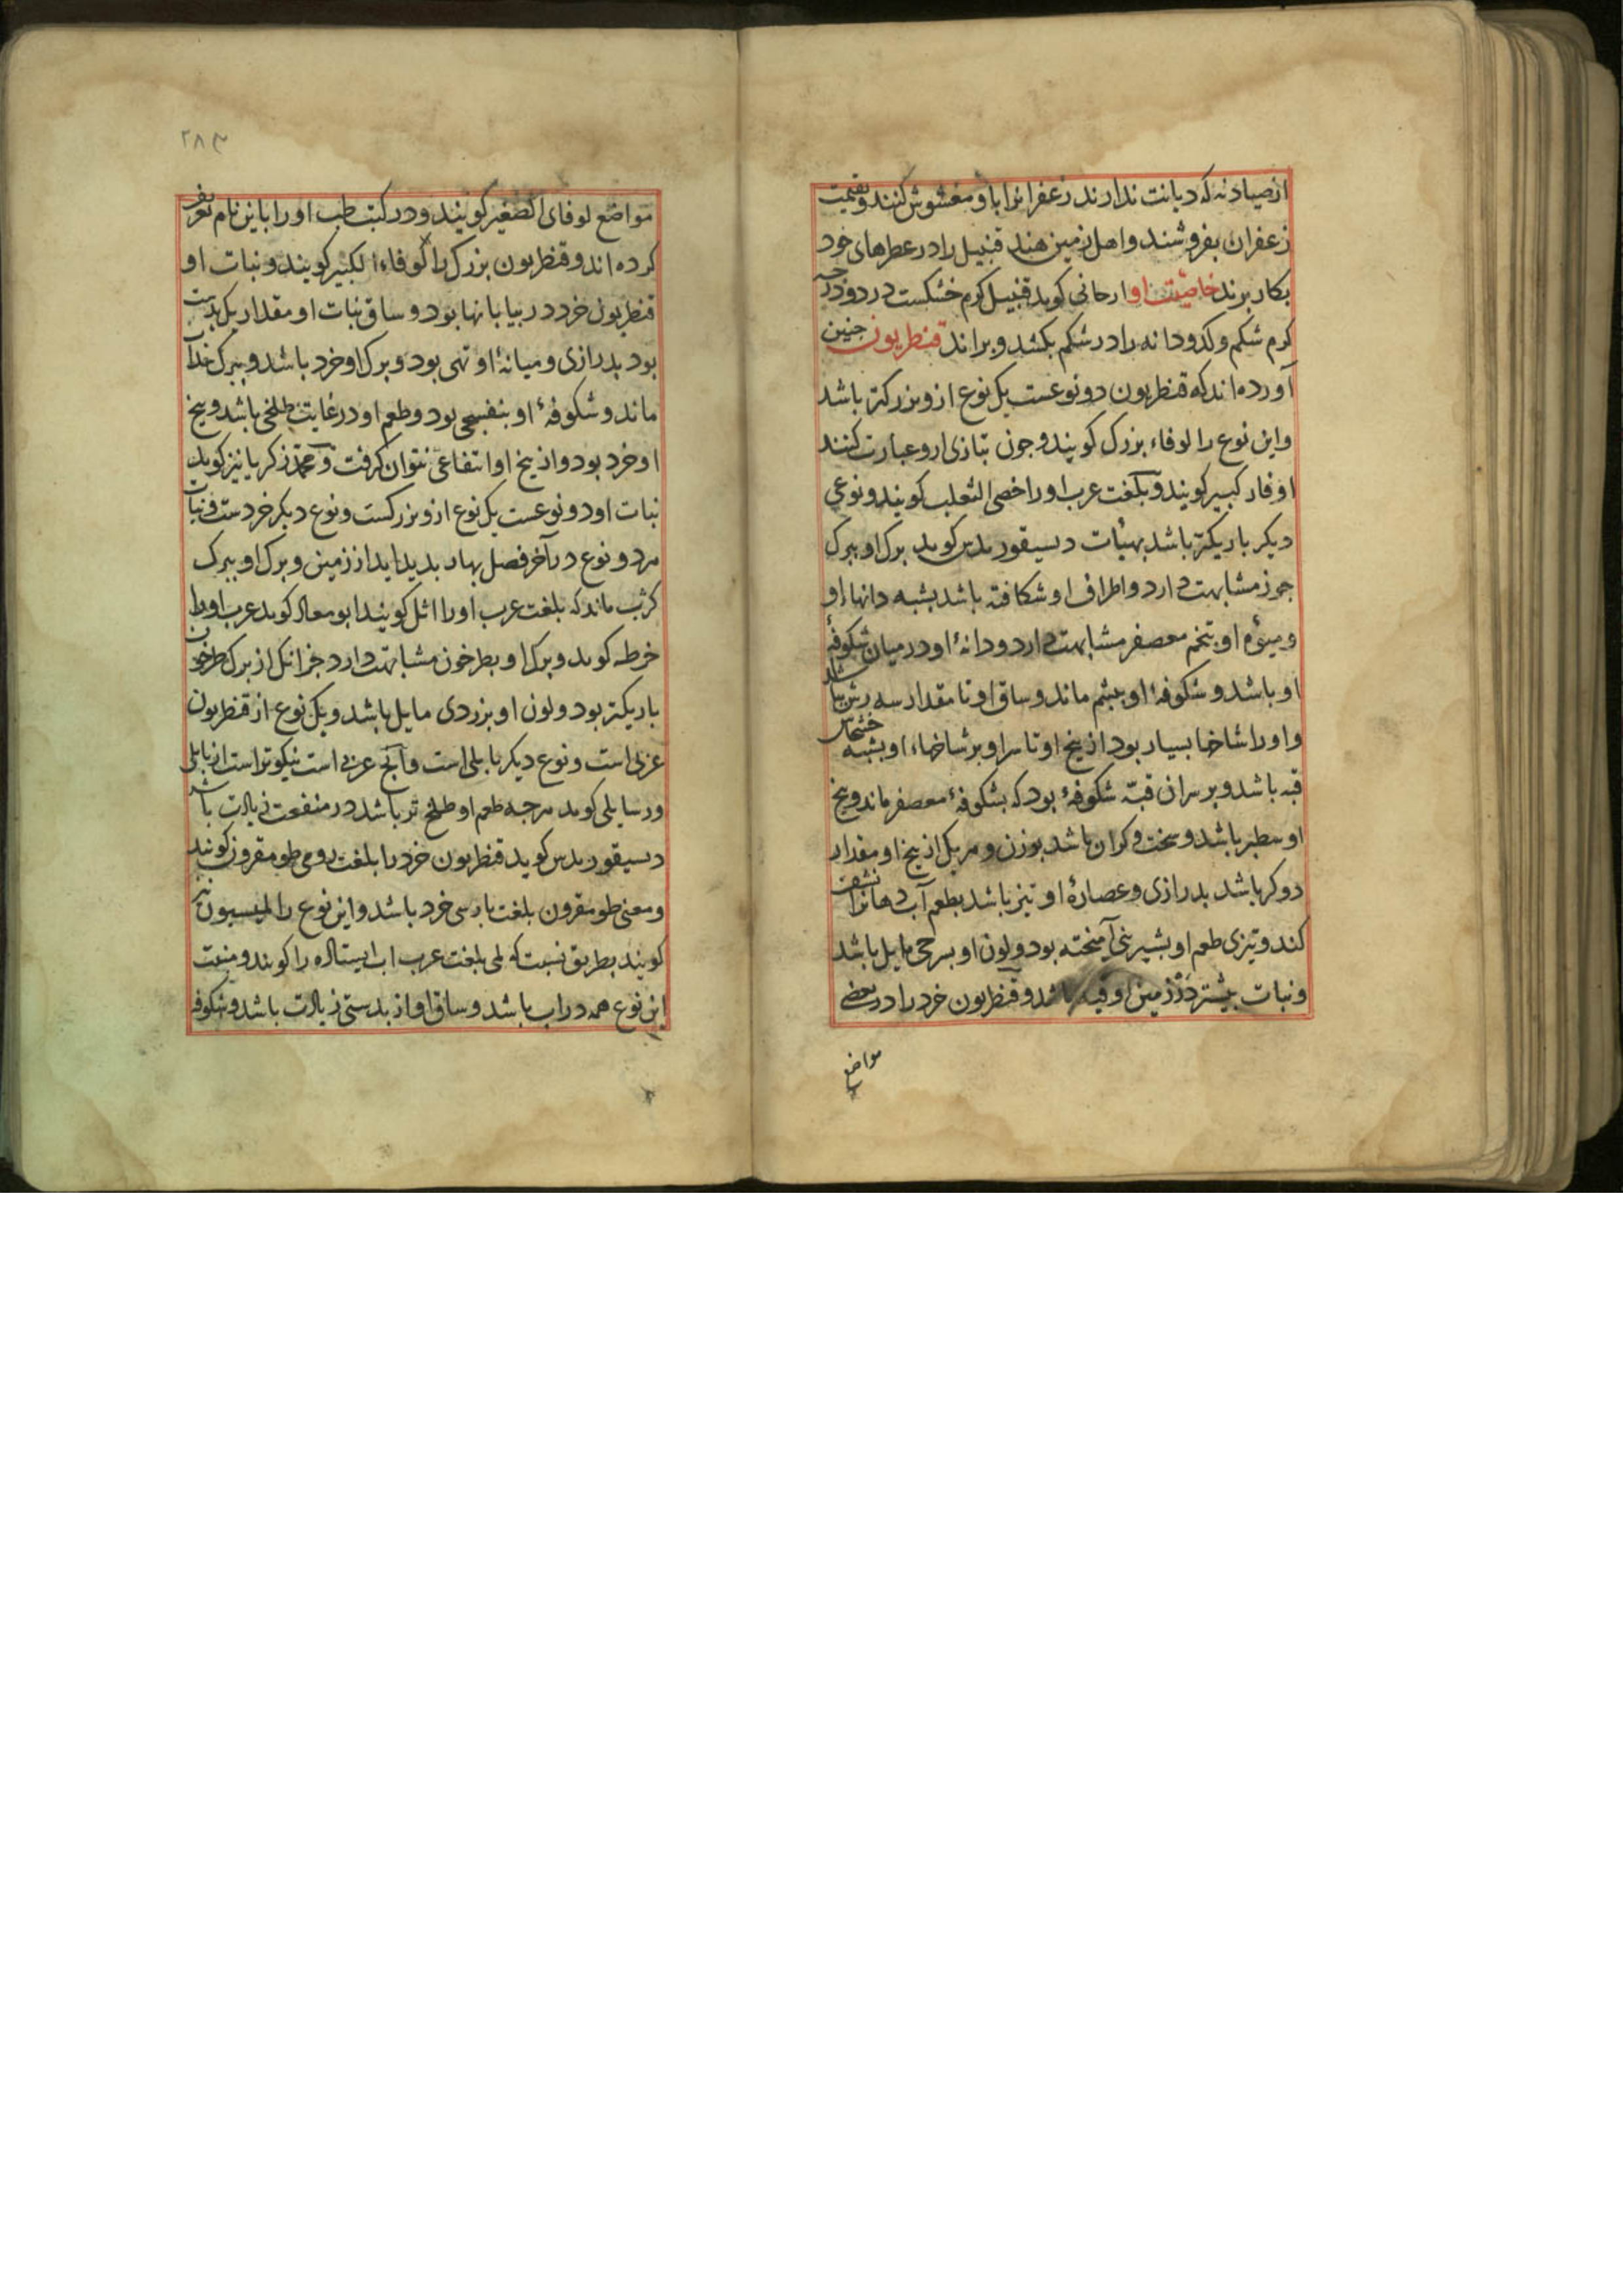 از صیادنه که دیانت ندارند زعفرانرا باو مغشوش کنند و بقیمت
زعفران بفروشند و اهل زمین هند قنبیل را در عطرهای خود
بکار برند خاصیت او ارحانی کوید قنبیل کرم خشکست در دو درجه
کرم شکم و کدودانه را در شکم بکشد و براند قنطریون جنین
آورده اند که قنطریون دو نوعست یک نوع ازو بزرکتر باشد
و این نوع را لوفاء بزرک کویند و جون بتازی ازو عبارت کنند
لوفاء کبیر کویند و بلغت عرب او را خصی الثعلب کویند و نوعی
دیکر باریکتر باشد بهیأت دیسیقوریدس کوید برک او ببرک
جوز مشابهت دارد و اطراف او شکافته باشد بشبه دانهاء او
و میوۀ او بتخم معصفر مشابهت دارد و دانۀ او در میان شکوفۀ
او باشد و شکوفۀ او بپشم ماند و ساق او تا مقدار سه رش باشد
و او را شاخها بسیار بود از بیخ او تا سر او بر شاخهاء او بشبه خشخاش
قبه باشد و بر سر ان قبّه شکوفۀ بود که بشکوفۀ معصفر ماند و بیخ
او سطبر باشد و سخت و کران باشد بوزن و هر یک از بیخ او مقدار
دو کز باشد بدرازی و عصارۀ او تیز باشد بطعم آب دهانرا نشف
کند و تیزی طعم او بشیرینی آمیخته بود و لون او بسرخی مایل باشد
و نبات بیشتر در زمین او باشد و قنطریون خرد را در بعضی
مواضع
۲۸۳
مواضع لوفای الصغیر کویند و در کتب طب او را باین نام تعریف
کرده اند و قنطریون بزرک را لوفاء الکبیر کویند و نبات او
قنطریون خرد در بیابانها بود و ساق نبات او مقدار یک بدست
بود بدرازی و میانۀ او تهی بود و برک او خرد باشد و ببرک
ماند و شکوفۀ او بنفسجی بود و طعم او در غایت طلخی باشد و بیخ
او خرد بود و از بیخ او انتفاعی نتوان کرفت و محمد زکریا نیز کوید
نبات او دو نوعست یک نوع ازو بزرکست و نوع دیکر خردست و نبات
هر دو نوع در آخر فصل بهار بدید اید از زمین و برک او ببرک
کرنب ماند که بلغت عرب او را اثل کویند ابو معاد کوید عرب او را
خرطه کوید و برک او بطرخون مشابهت دارد جز انک از برک طرخون
باریکتر بود و لون او بزردی مایل باشد و یک نوع از قنطریون
عربی است و نوع دیکر بابلی است و آنج عربی است نیکوتر است از بابلی
و رسایلی کوید هر جه طعم او طلخ تر باشد در منفعت زیادت باشد
دیسیقوریدس کوید قنطریون خرد را بلغت رومی طومقرون کویند
و معنی طومقرون بلغت بارسی خرد باشد و این نوع را لمیسیون نیز
کویند بطریق نسبت که لمی بلغت عرب اب ایستاده را کویند و منبت
این نوع همه در اب باشد و ساق او از بدستی زیادت باشد و شکوفۀ